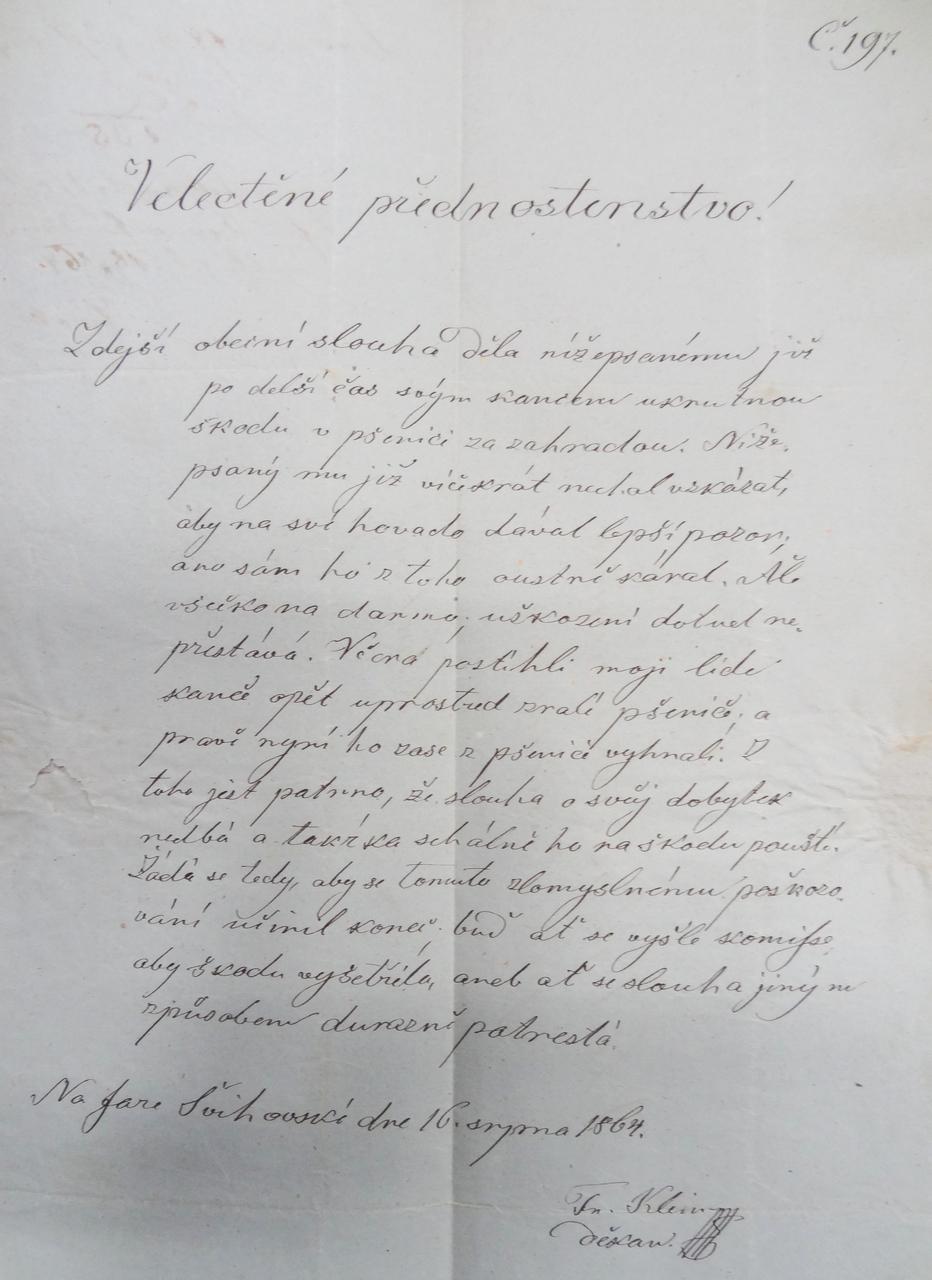 Č. 197.
Velectěné přednostenstvo!
Zdejší obecní slouha děla nížepsanému již
po delší čas svým kancem ukrutnou
škodu v pšenici za zahradou. Níže-
psaný mu již vícekrát nechal vzkázat,
aby na své hovado dával lepší pozor;
ano sám ho z toho oustně káral. Ale
všecko na darmo; uškození dotud ne-
přestává. Včera postihli moji lidé
kance opět uprostřed zralé pšenice; a
právě nyní ho zase z pšenice vyhnali. Z
toho jest patrno, že slouha o svůj dobytek
nedbá a takřka schálně ho na škodu pouští.
Žádá se tedy, aby se tomuto zlomyslnému poškozo-
vání učinil konec; buď ať se vyšle komisse,
aby škodu vyšetřila, aneb ať se slouha jiným
způsobem důrazně potrestá.
Na faře Švihovské dne 16. srpna 1864.
Fr. Klein
děkan.